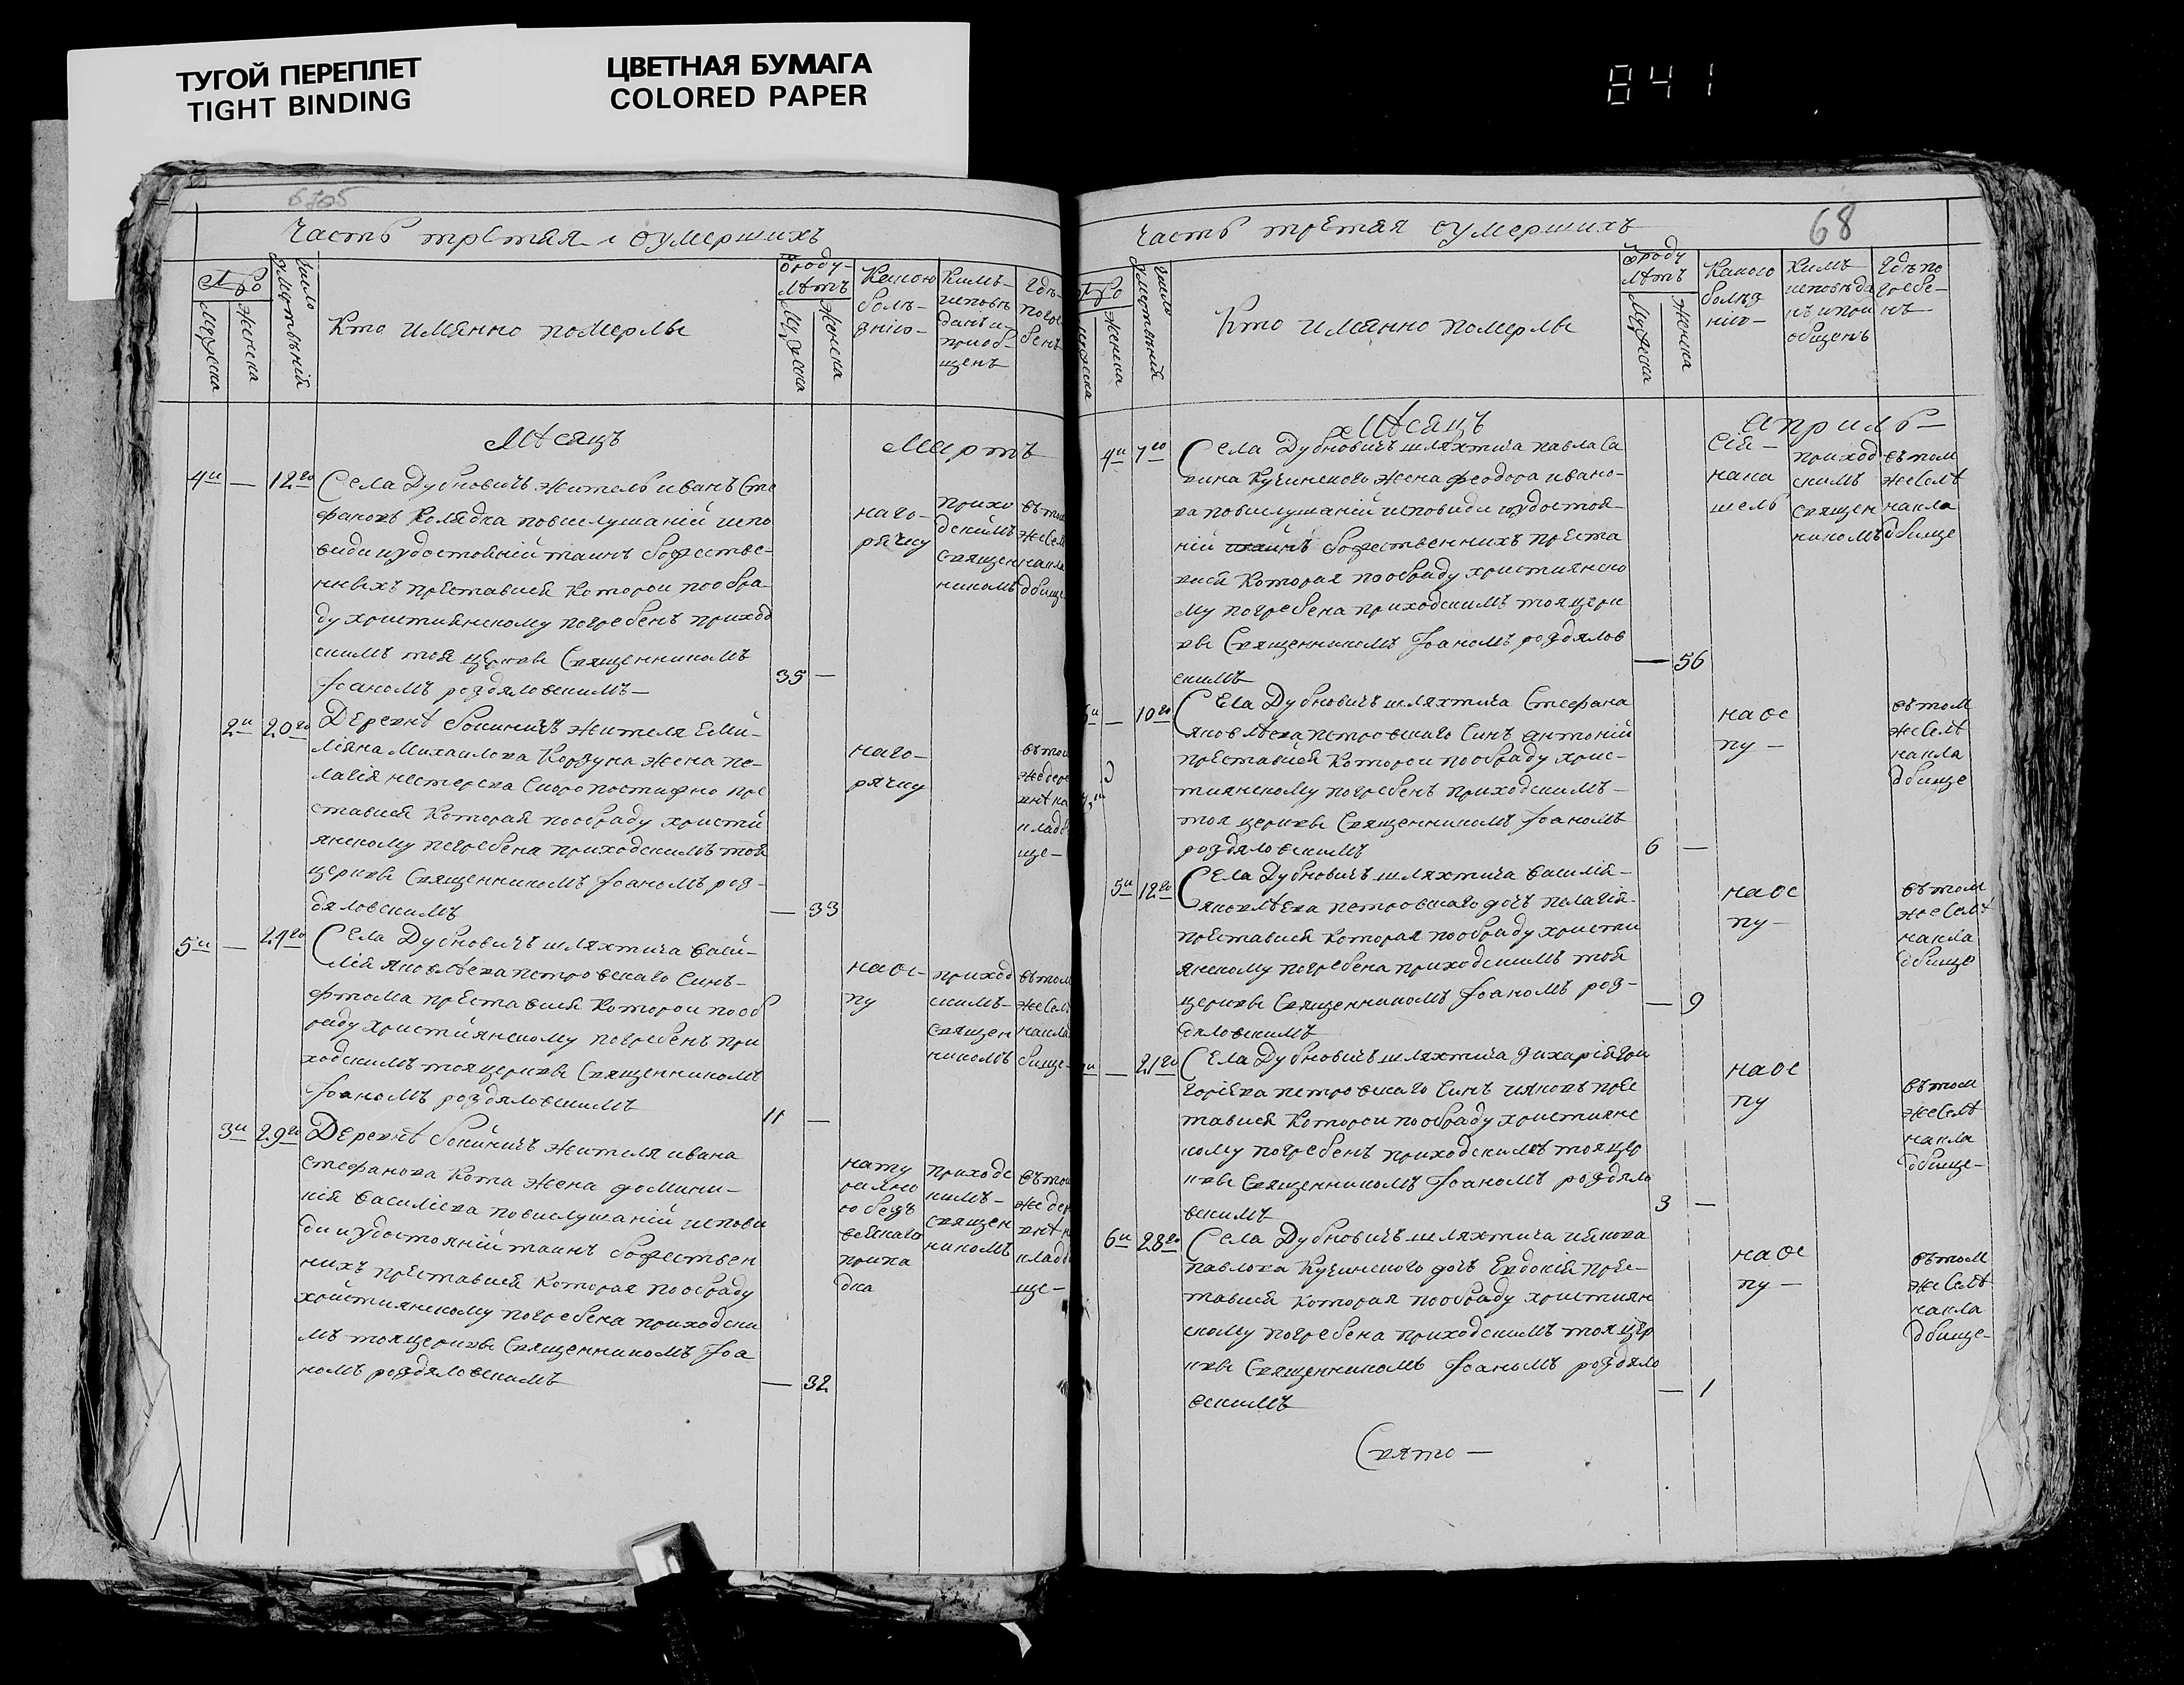 ТУГОЙ ПЕРЕПЛЕТ
TIGHT BINDING
ЦВЕТНАЯ БУМАГА
COLORED PAPER
841
Часть третая оумершихъ
Число
Мужеска
Женска
Кто имянно померлъ
Лѣтъ
Мужеска
Женска
Какою
болѣ-
зніто-
Кимъ-
исповѣ
данъ и-
приоб-
щенъ
Гдѣ-
погре
бенъ
Мѣсяцъ
Мартъ
4и — 12го Села Дубновичъ житель иванъ Сте
фановъ Колядка повислушаній испо
види иудостоѣній таинъ божестве-
нныхъ преставися Которои пообра-
ду християнскому погребенъ приход
скимъ тоя церкве Священникомъ
Јоаномъ роздяловскимъ—
35 —
наго-
рячку
прихо
дскимъ
священ
никомъ
вътом
жесел
накла
дбище
2и 20го Деревнѣ боничъ жителя Еми-
ліяна Михаилова Корзуна жена пе-
лагія нестерева Скоропостижно пре
ставися Которая пообраду христи
янскому погребена приходскимъ тоя
церкве Священникомъ Јоаномъ роз-
дяловскимъ
— 33
наго-
рячку
вътои
ждере
внѣ на
кладб
ще—
5и — 24го Села Дубновичъ шляхтича васи-
лія яковлѣва петровскаго Синъ-
фтома преставися Которои пооб
раду християнскому погребенъ при
ходскимъ тоя церкве Священникомъ
Јоаномъ роздяловскимъ
11 —
наос-
пу
приход
скимъ-
священ
никомъ
вътом
жесел
накла
бище-
3и 29го Деревнѣ боничъ жителя ивана
Стефанова Кота жена домини-
кія василіева повислушаній испови
ди иудостояній таинъ божествен
нихъ преставися Которая пообраду
християнскому погребена приходски
мъ тоя церкве Священникомъ Јоа
номъ роздяловскимъ
— 32
приходс
кимъ-
священ
никомъ
вътои
ждер
внѣ н
кладб
ще—
Часть третая оумершихъ
68
Число
Женска
Кто имянно померлъ
Лѣтъ
Мужеска
Женска
Какого
болѣз
нію-
Кимъ
исповѣда
нъ и при
общенъ
Гдѣ по
гребе-
нъ
Мѣсяцъ
Априль—
4и 7го Села Дубновичъ шляхтича павла Са
вина Кучинского жена феодора ивано-
ва повислушаній исповиди иудостоя-
ній таинъ божественнихъ преста
вися Которая пообраду християнско
му погребена приходскимъ тоя церк
кве Священникомъ Јоаномъ роздялов
скимъ
— 56
приход
скимъ
священ
никомъ
вътом
жеселѣ
накла
дбище
— 10го Села Дубновичъ шляхтича Стефана
яковлѣва петровскаго Синъ антоній
преставися Которои пообраду хрис-
тиянскому погребенъ приходскимъ—
тоя церкве Священникомъ Јоаномъ
роздяловскимъ
6 —
наос
пу—
вътом
жеселѣ
накла
дбище
5и 12го Села Дубновичъ шляхтича василія-
яковлѣва петровскаго дочъ пелагія-
преставися Которая пообраду христи
янскому погребена приходскимъ тоя
церкве Священникомъ Јоаномъ роз-
дяловскимъ
— 9
наос
пу—
вътом
жеселѣ
накла
дбище
— 21го Села Дубновичъ шляхтича захарія гри
горіева петровскаго Синъ ияковъ прес
тавися Которои пообраду християнс
кому погребенъ приходскимъ тоя цер
кве Священникомъ Јоаномъ роздяло
вскимъ
3 —
наос
пу
вътом
жеселѣ
накла
дбище—
6и 28го Села Дубновичъ шляхтича иякова
павлова Кучинского дочъ Евдокія прес-
тавися Которая пообраду християн
скому погребена приходскимъ тоя цер
кве Священникомъ Јоаномъ роздяло
вскимъ
— 1
наос
пу—
вътом
жеселѣ
накла
дбище—
Свято—